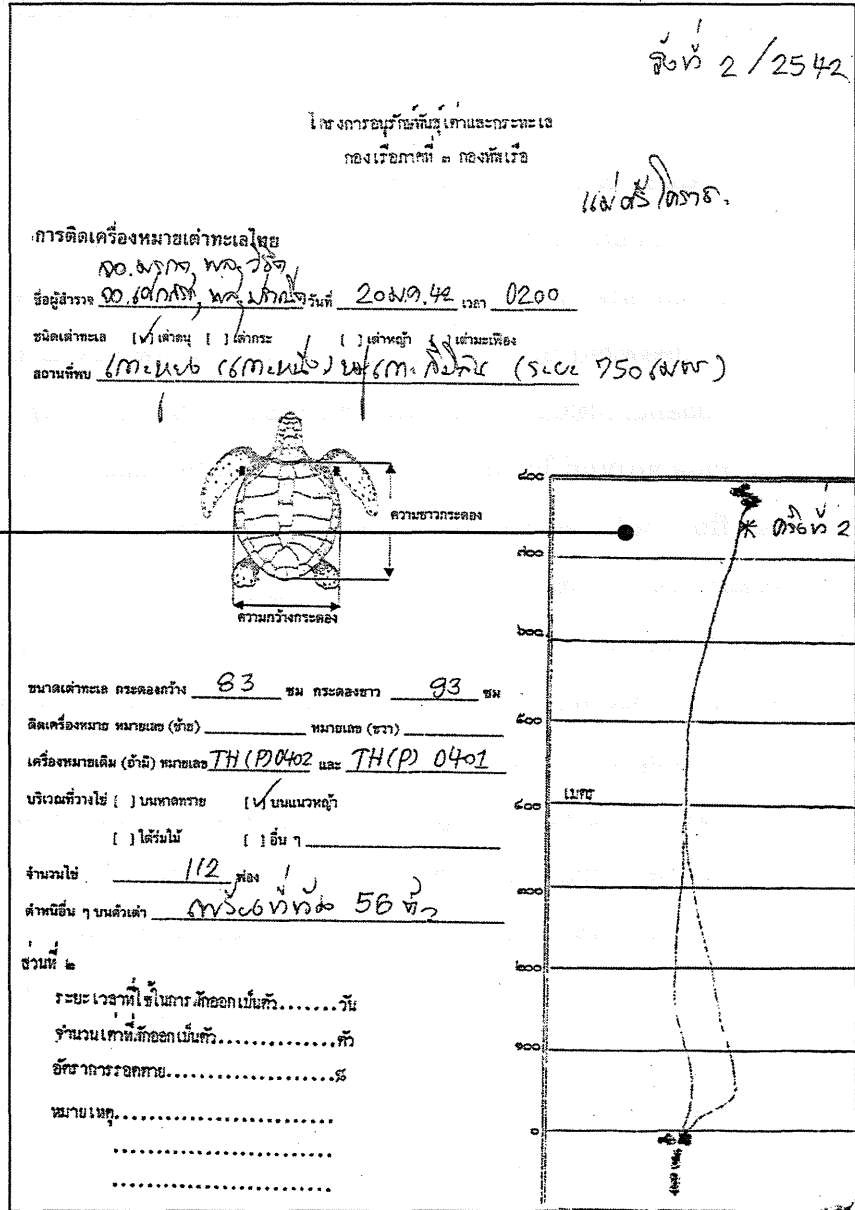 รังที่ 2/2542
โครงการอนุรักษ์พันธุ์เต่าและกระทะเล
กองเรือภาคที่ ๓ กองทัพเรือ
การติดเครื่องหมายเต่าทะเลไทย
ชื่อผู้สำรวจ วันที่ 20 เวลา 0200
ชนิดเต่าทะเล [✓] เต่าตนุ [ ] เต่ากระ [ ] เต่าหญ้า [ ] เต่ามะเฟือง
สถานที่พบ (ระยะ 750 เมตร)
ความยาวกระดอง
ความกว้างกระดอง
ขนาดเต่าทะเล กระดองกว้าง 83 ซม กระดองยาว 93 ซม
ติดเครื่องหมาย หมายเลข (ซ้าย) หมายเลข (ขวา)
เครื่องหมายเดิม (ถ้ามี) หมายเลข TH(P)0402 และ TH(P) 0401
บริเวณที่วางไข่ [ ] บนหาดทราย [✓] บนแนวหญ้า
[ ] ใต้ร่มไม้ [ ] อื่น ๆ
จำนวนไข่ 112 ฟอง
ตำหนิอื่น ๆ บนตัวเต่า เพรียงที่ท้อง 56 ตัว
ส่วนที่ ๒
ระยะเวลาที่ใช้ในการฟักออกเป็นตัว.......วัน
จำนวนเต่าที่ฟักออกเป็นตัว..............ตัว
อัตราการรอดตาย....................%
หมายเหตุ..........................
..........................
..........................
๘๐๐
ครั้งที่ 2
๗๐๐
๖๐๐
๕๐๐
๔๐๐ เมตร
๓๐๐
๒๐๐
๑๐๐
๐